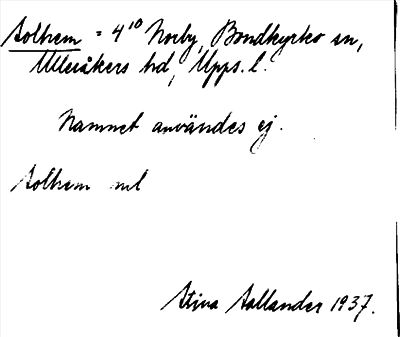 Solhem = 4¹⁰ Norby, Bondkyrko sn,
Ulleråkers hd, Upps. l.
Namnet användes ej.
Solhem ml
Stina Sallander 1937.